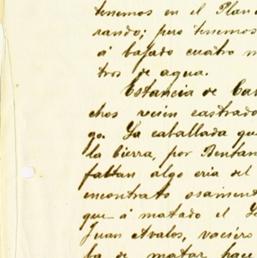 tenemos en el Plan
rando; pero tenemos
á bajado cuatro m
tros de agua.
Estancia de Ca
chos recien castrado
go. La caballada que
la Sierra, por
faltan algo
encontrato osament
que á matado el
Juan Avalos,
ba de matar hace